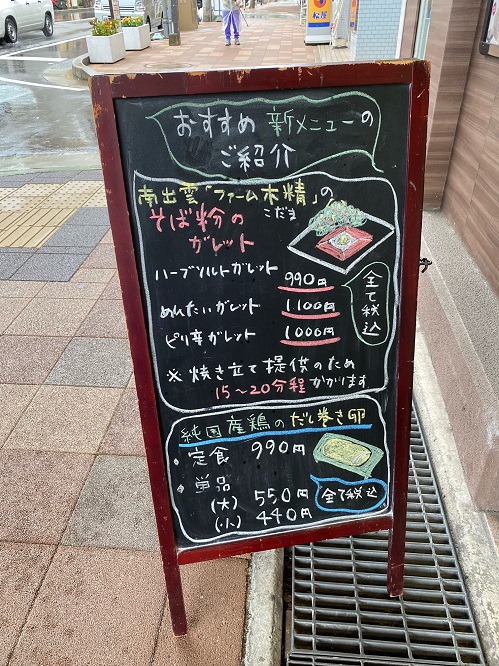 おすすめ 新メニューの
ご紹介
南出雲「ファーム木精」の
こだま
そば粉の
ガレット
ハーブソルトガレット 990円
めんたいガレット 1100円
ピリ辛ガレット 1000円
全て税込
※焼き立て提供のため
15〜20分程かかります
純国産鶏のだし巻き卵
・定食 990円
・単品
(大) 550円
(小) 440円
全て税込
松屋